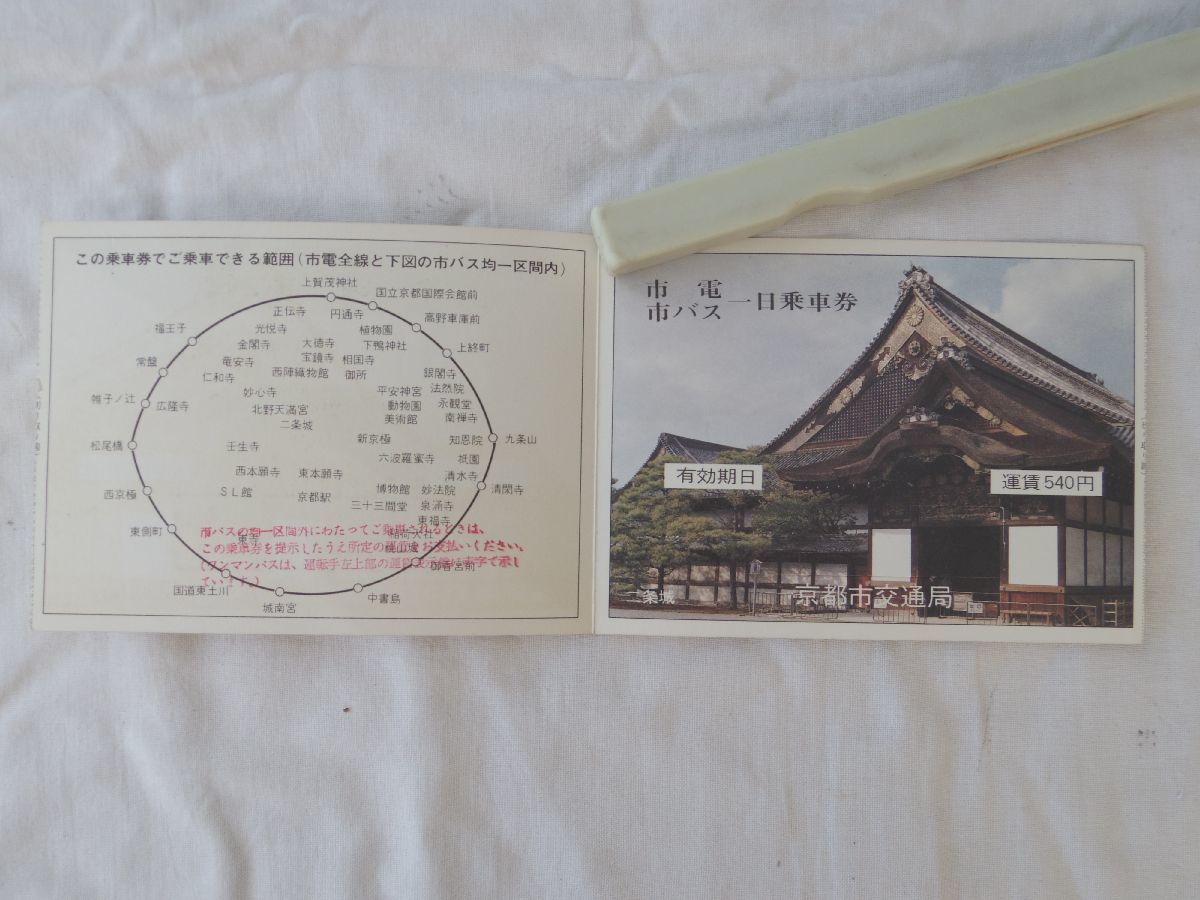 この乗車券でご乗車できる範囲(市電全線と下図の市バス均一区間内)
上賀茂神社
国立京都国際会館前
正伝寺 円通寺
高野車庫前
福王子 光悦寺 植物園
金閣寺 大徳寺 下鴨神社 上終町
常盤 竜安寺 宝鏡寺 相国寺
仁和寺 西陣織物館 御所 銀閣寺
妙心寺 平安神宮 法然院
帷子ノ辻 広隆寺 北野天満宮 動物園 永観堂
二条城 美術館 南禅寺
松尾橋 壬生寺 新京極 知恩院 九条山
六波羅蜜寺 祇園
西本願寺 東本願寺 清水寺
西京極 SL館 京都駅 博物館 妙法院 清閑寺
三十三間堂 泉涌寺
東福寺
東側町 東寺 稲荷大社
桃山城
御香宮前
国道東土川
城南宮 中書島
市バスの均一区間外にわたってご乗車されるときは、
この乗車券を提示したうえ所定の運賃をお支払いください。
(ワンマンバスは、運転手左上部の運賃表示器に赤字で示し
ています。)
市電
市バス 一日乗車券
有効期日
運賃540円
二条城
京都市交通局